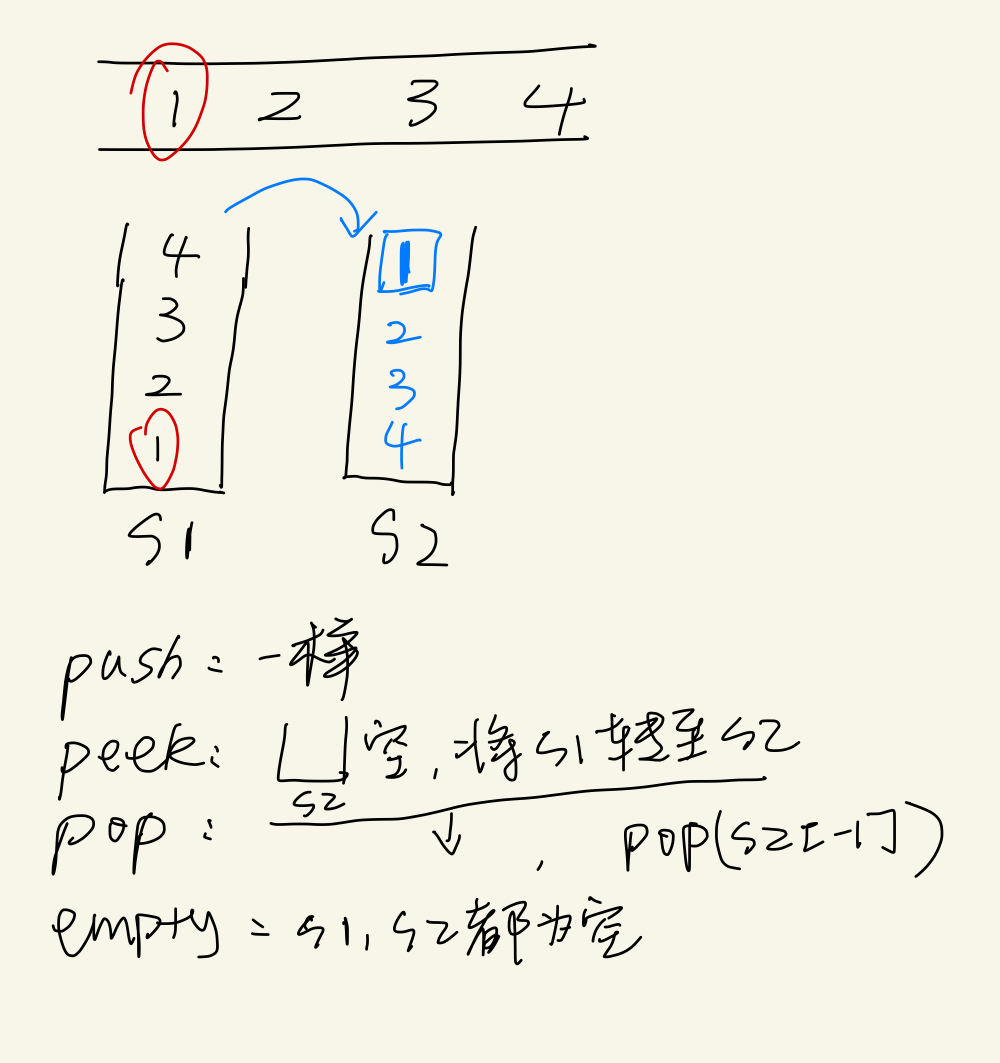 1 2 3 4
4 1
3 2
2 3
1 4
S1 S2
push: 一样
peek: 空, 将S1转至S2
S2
pop: ↓, pop(S2[-1])
empty: S1, S2都为空